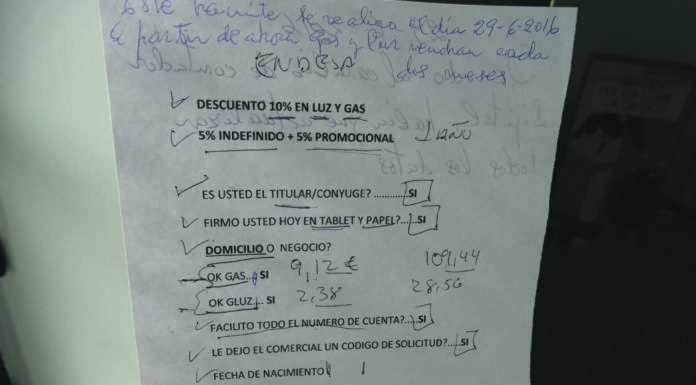 Este tramite, se realiza el día 29-6-2016
A partir de ahora gas y luz vendran cada
dos meses
ENDESA
DESCUENTO 10% EN LUZ Y GAS
5% INDEFINIDO + 5% PROMOCIONAL 1 año
ES USTED EL TITULAR/CONYUGE? ............SI
FIRMO USTED HOY EN TABLET Y PAPEL?....SI
DOMICILIO O NEGOCIO?
OK GAS... SI 9,12 € 109,44
OK GLUZ... SI 2,38 28,56
FACILITO TODO EL NUMERO DE CUENTA?...SI
LE DEJO EL COMERCIAL UN CODIGO DE SOLICITUD?...SI
FECHA DE NACIMIENTO